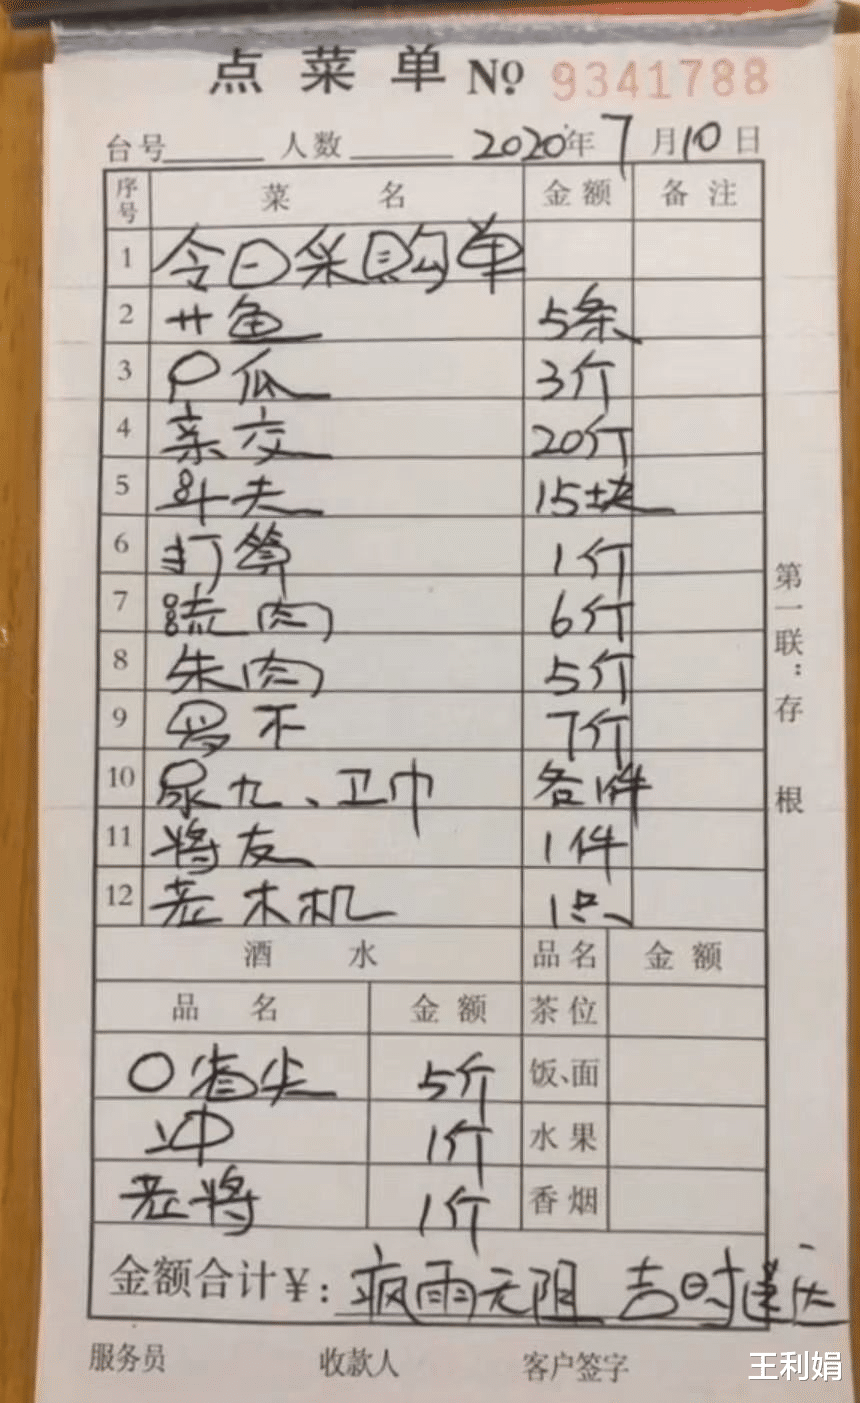 点菜单 № 9341788
台号 人数 2020年7月10日
序号 菜名 金额 备注
1 今日采购单
2 艹鱼 5条
3 卩瓜 3斤
4 亲交 20斤
5 斗夫 15块
6 打算 1斤
7 疏肉 6斤
8 朱肉 5斤
9 不 7斤
10 尿九、卫巾 各1件
11 将友 1件
12 老木机 1只
酒水 品名 金额
品名 金额 茶位
〇省尖 5斤 饭、面
冲 1斤 水果
老将 1斤 香烟
金额合计¥: 疯雨无阻 吉时达
服务员 收款人 客户签字
第一联:存根
王利娟